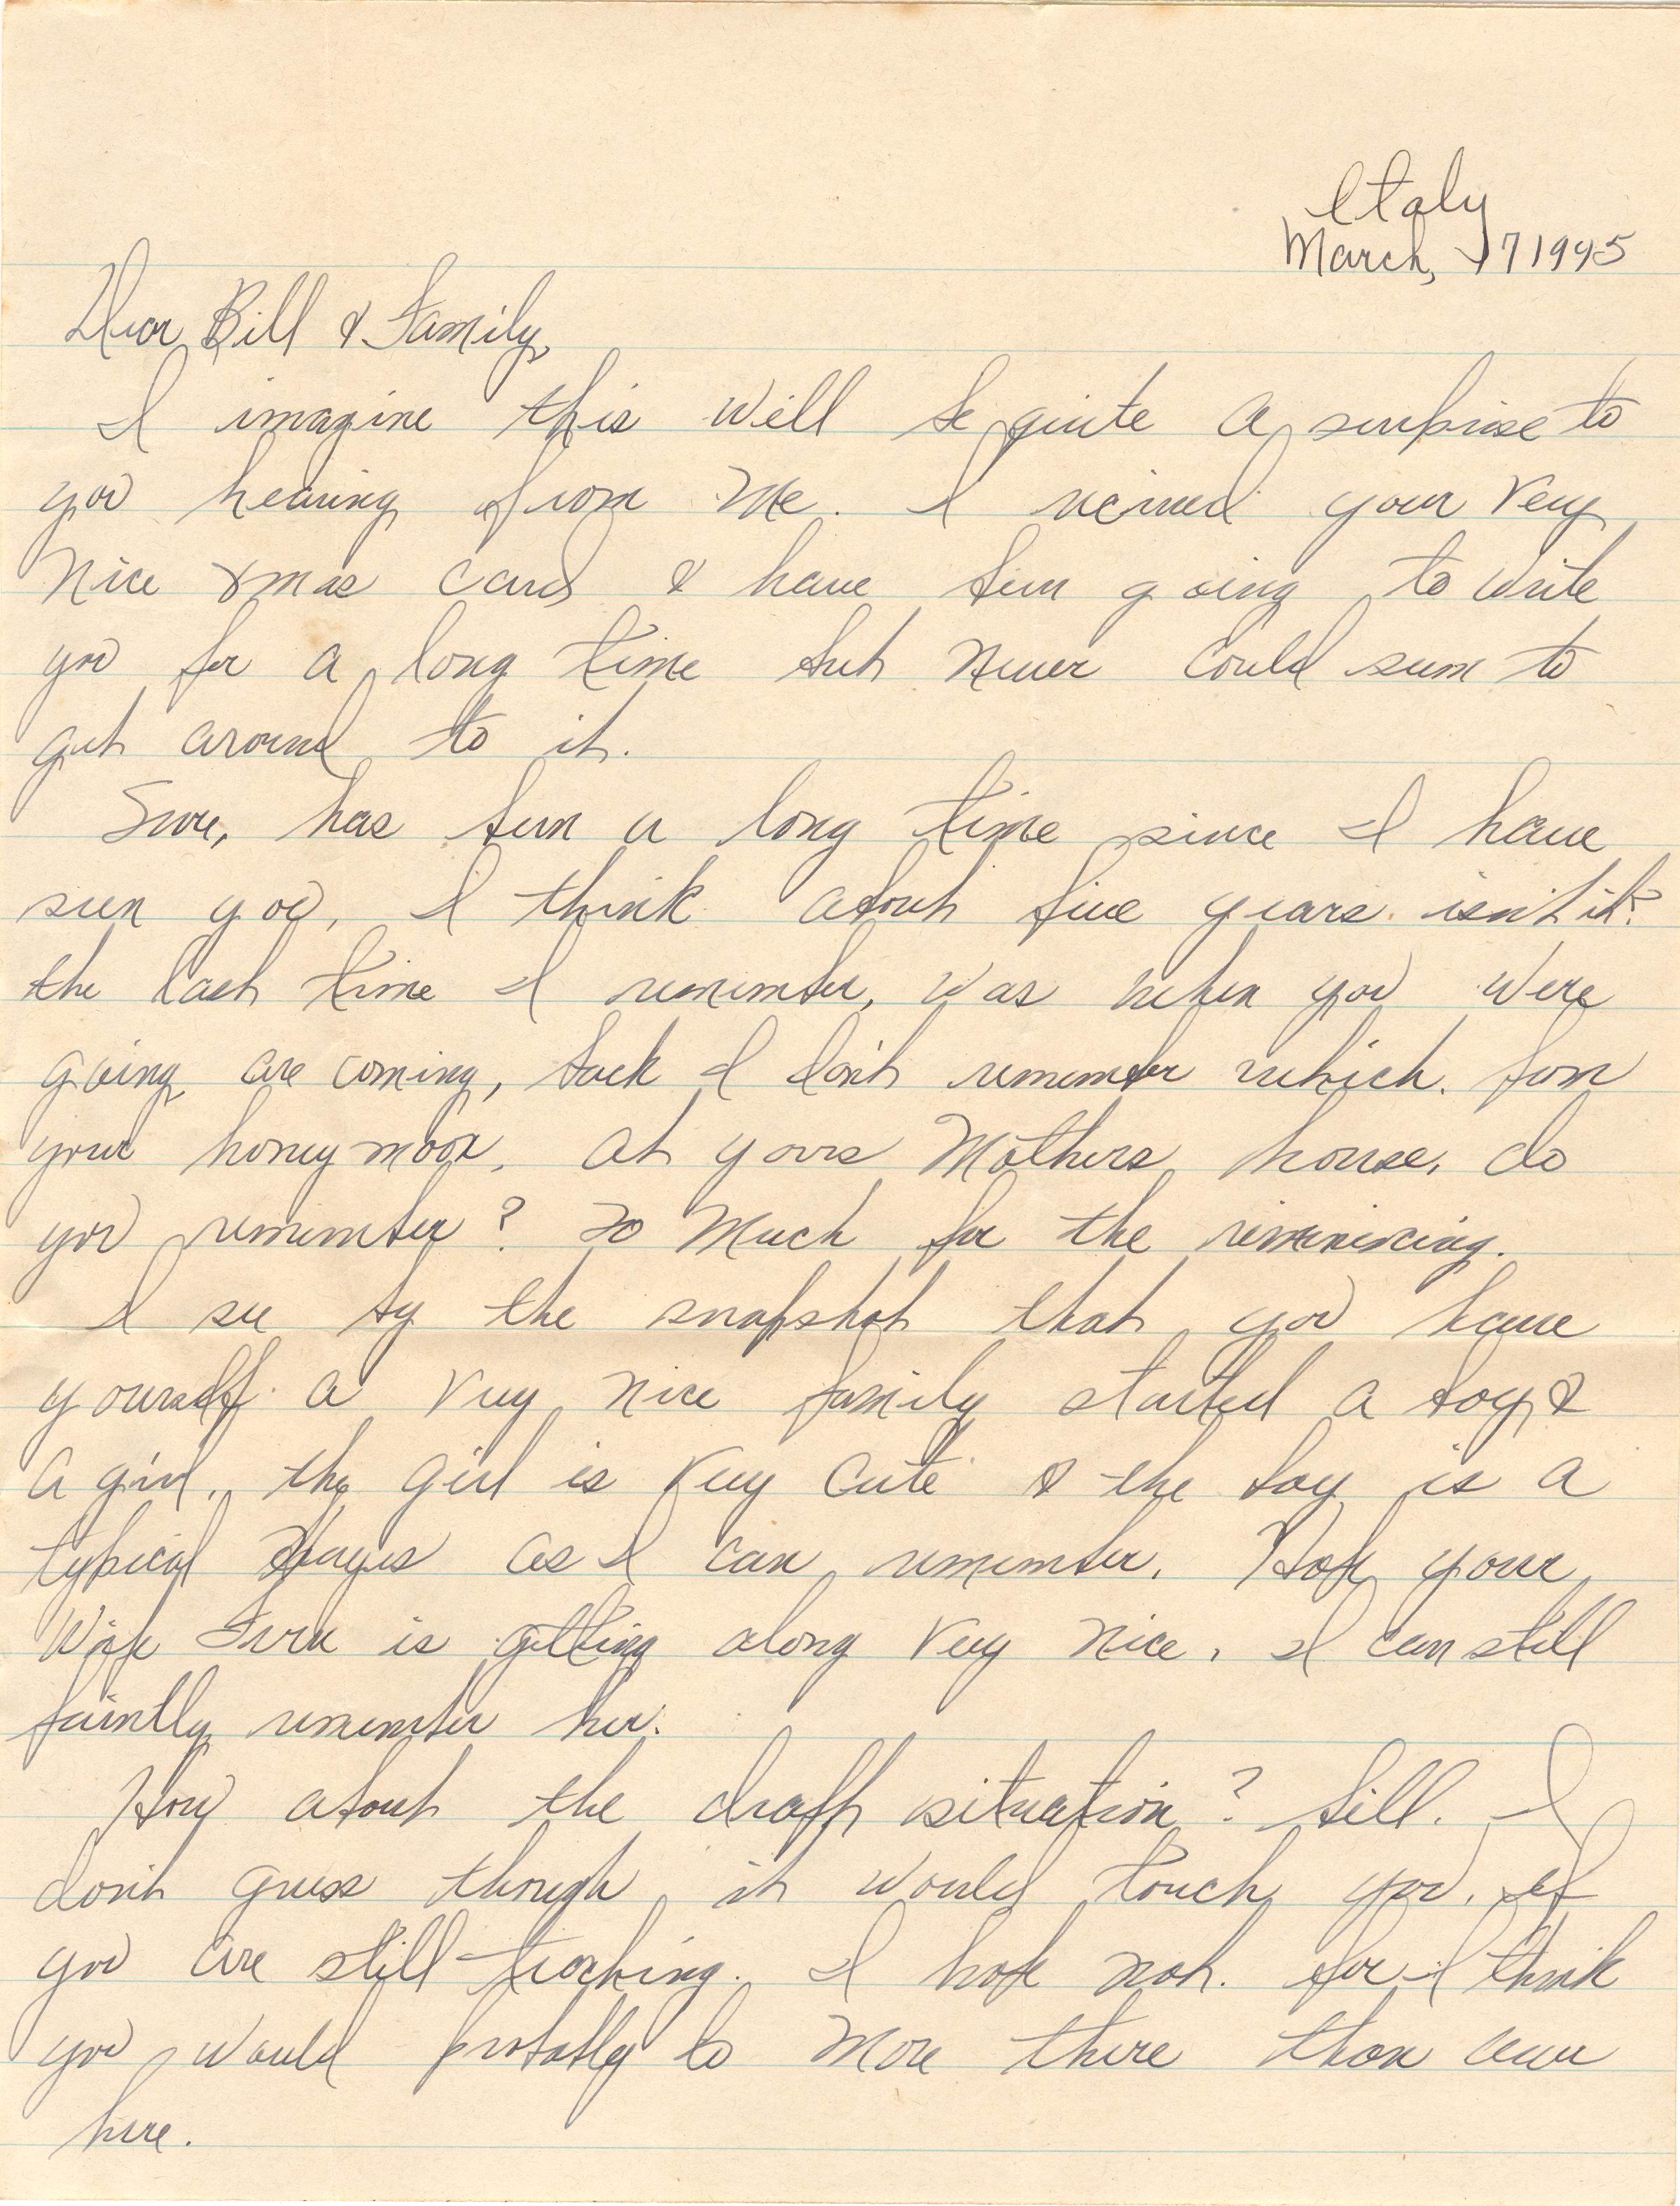 Italy
March, 17 1945
Dear Bill & Family,
I imagine this will be quite a surprise to
you hearing from me. I recived your very
nice xmas card & have been going to write
you for a long time but never could seem to
get around to it.
Sure, has been a long time since I have
seen you, I think about five years. isn't it?
the last time I remember, was when you were
going are coming, back I don't remember which. from
your honeymoon, at yours Mothers house, do
you remember? so much for the reminiscing.
I see by the snapshot that you have
yourself a very nice family started a boy &
a girl, the girl is very cute & the boy is a
typical Hayes as I can remember. Hope your
Wife is getting along very nice, I can still
faintly remember her.
How about the draft situation? Bill. I
don't guess though it would touch you, if
you are still I hope not. for I think
you would probably do more there than over
here.